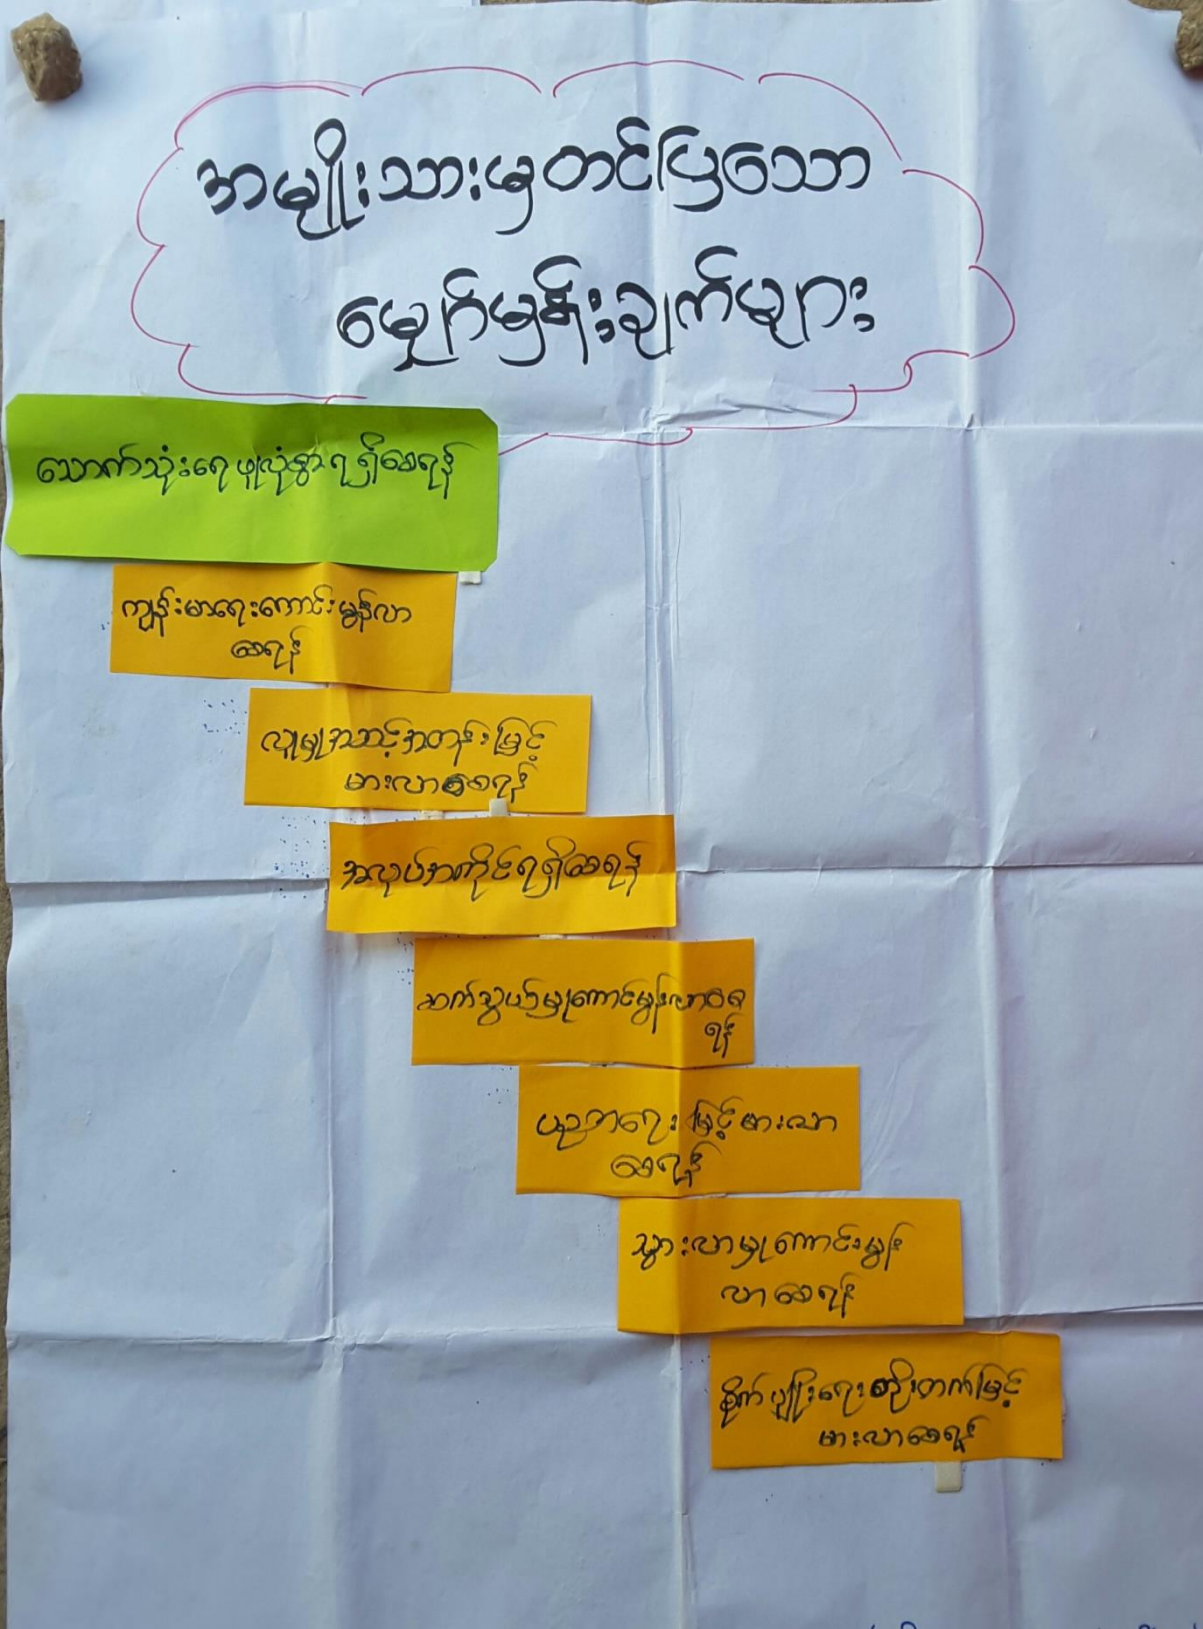 အမျိုးသားမှတင်ပြသော
မျှော်မှန်းချက်များ
သောက်သုံးရေ ဖူလုံစွာ ရရှိစေရန်
ကျန်းမာရေးကောင်းမွန်လာ
စေရန်
လူမှုအဆင့်အတန်းမြင့်
မားလာစေရန်
အလုပ်အကိုင်ရရှိစေရန်
ဆက်သွယ်မှုကောင်မွန်လာစေ
ရန်
ပညာရေး မြင့်မားလာ
စေရန်
သွားလာမှုကောင်းမွန်
လာစေရန်
စိုက်ပျိုးရေးတိုးတက်မြင့်
မားလာစေရန်